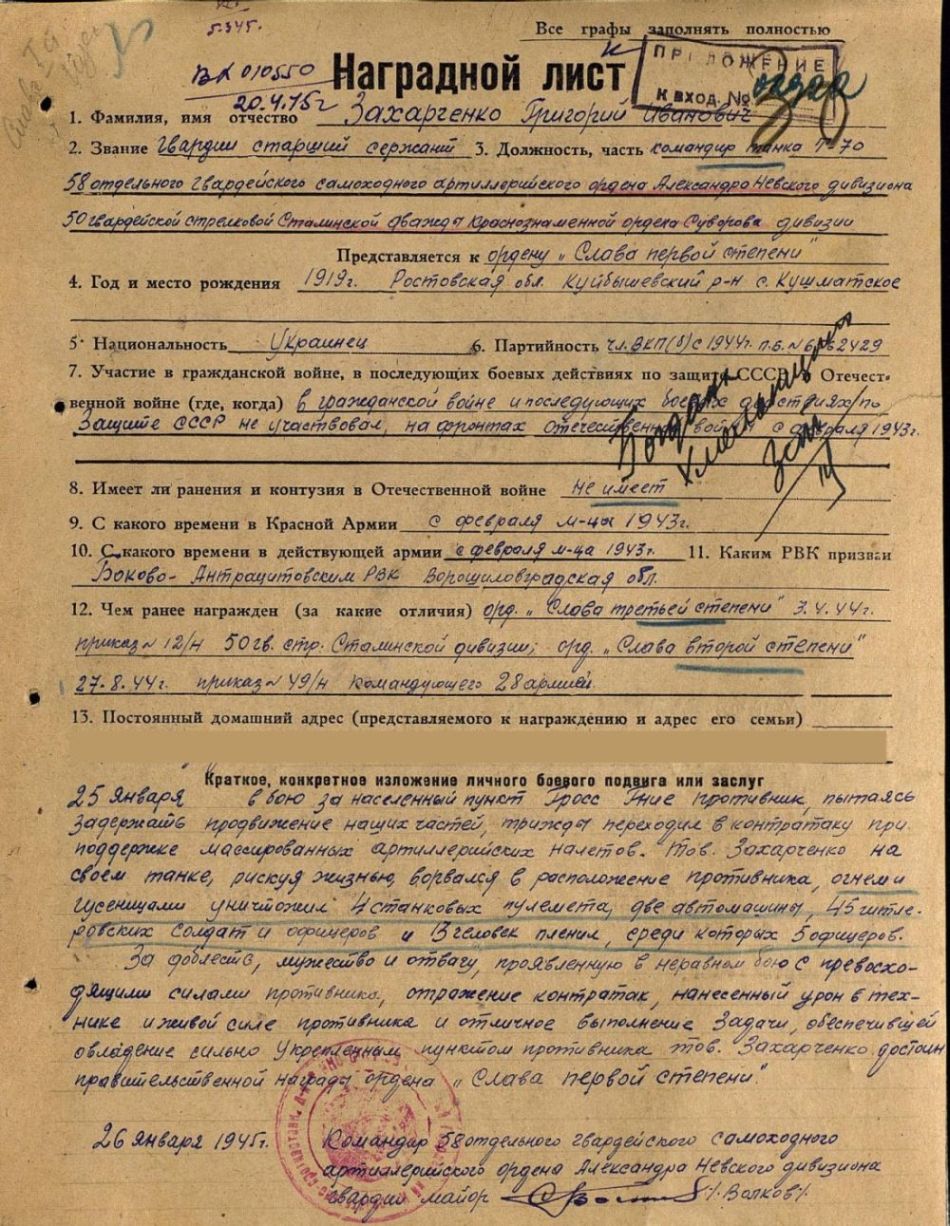 5.345.
Все графы заполнять полностью
ПРИЛОЖЕНИЕ
К ВХОД. №
Наградной лист
ВХ 010550
20.4.45г
1. Фамилия, имя отчество Захарченко Григорий Иванович
2. Звание Гвардии старший сержант 3. Должность, часть командир танка Т-70
58 отдельного Гвардейского самоходного артиллерийского ордена Александра Невского дивизиона
50 гвардейской стрелковой Сталинской дважды Краснознаменной ордена Суворова дивизии
Представляется к ордену „Слава первой степени"
4. Год и место рождения 1919г. Ростовская обл. Куйбышевский р-н с. Кушматское
5. Национальность Украинец 6. Партийность чл. ВКП(б) с 1944г. п.б. №
7. Участие в гражданской войне, в последующих боевых действиях по защите СССР и Отечест-
венной войне (где, когда) в гражданской войне и последующих боевых действиях по
защите СССР не участвовал, на фронтах отечественной войны с февраля 1943г.
Богдана
Хмельницкого
8. Имеет ли ранения и контузия в Отечественной войне не имеет
9. С какого времени в Красной Армии с февраля м-ца 1943г.
10. С какого времени в действующей армии с февраля м-ца 1943г. 11. Каким РВК призван
Боково-Антрацитовским РВК Ворошиловградская обл.
12. Чем ранее награжден (за какие отличия) орд. „Слава третьей степени" 3.4.44г.
приказ № 12/н 50 гв. стр. Сталинской дивизии; орд. „Слава второй степени"
27.8.44г. приказ № 49/н командующего 28 армией.
13. Постоянный домашний адрес (представляемого к награждению и адрес его семьи)
Краткое, конкретное изложение личного боевого подвига или заслуг
25 января в бою за населенный пункт Гросс противник, пытаясь
задержать продвижение наших частей, трижды переходил в контратаку при
поддержке массированных артиллерийских налетов. Тов. Захарченко на
своем танке, рискуя жизнью, ворвался в расположение противника, огнем и
гусеницами уничтожил 4 станковых пулемета, две автомашины, 45 гитле-
ровских солдат и офицеров и 13 человек пленил, среди которых 5 офицеров.
За доблесть, мужество и отвагу, проявленную в неравном бою с превосхо-
дящими силами противника, отражение контратак, нанесенный урон в тех-
нике и живой силе противника и отличное выполнение задачи, обеспечившей
овладение сильно укрепленным пунктом противника тов. Захарченко достоин
правительственной награды ордена „Слава первой степени".
26 января 1945г. Командир 58 отдельного гвардейского самоходного
артиллерийского ордена Александра Невского дивизиона
гвардии майор /Волков/